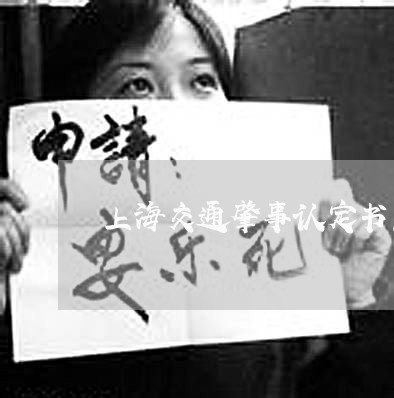 申請：
上海交通肇事认定书
安乐死